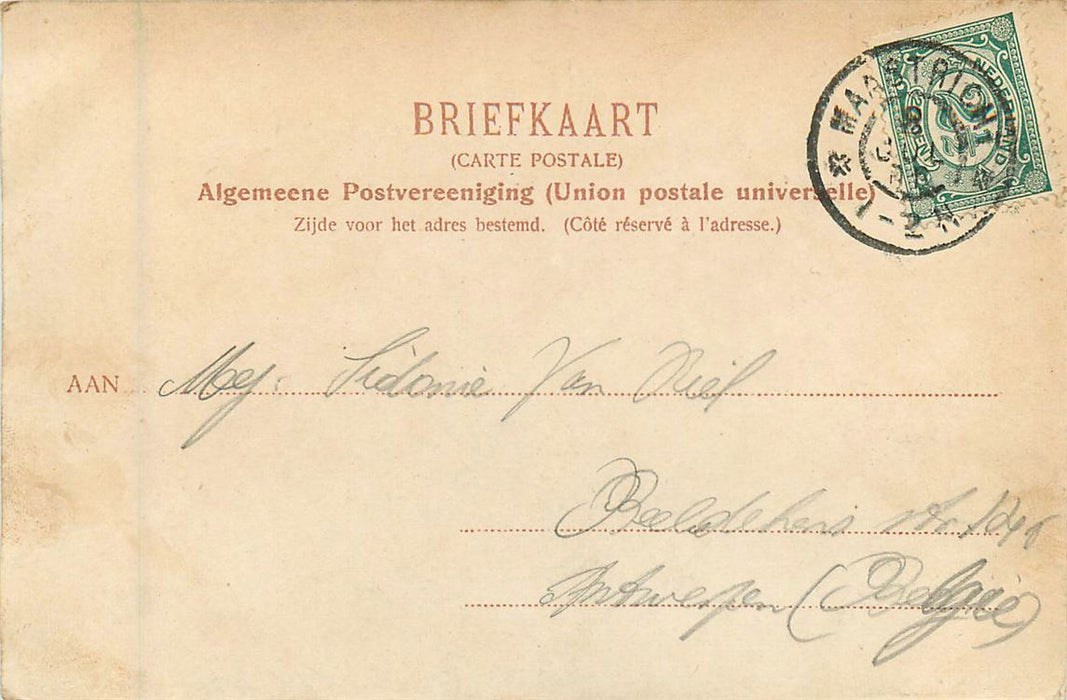 BRIEFKAART
(CARTE POSTALE)
Algemeene Postvereeniging (Union postale universelle)
Zijde voor het adres bestemd. (Côté réservé à l'adresse.)
NEDERLAND
2½
MAASTRICHT
1-2 N
AAN Mej: Sidonie Van Riel
Beeldekens str
Antwerpen (België)